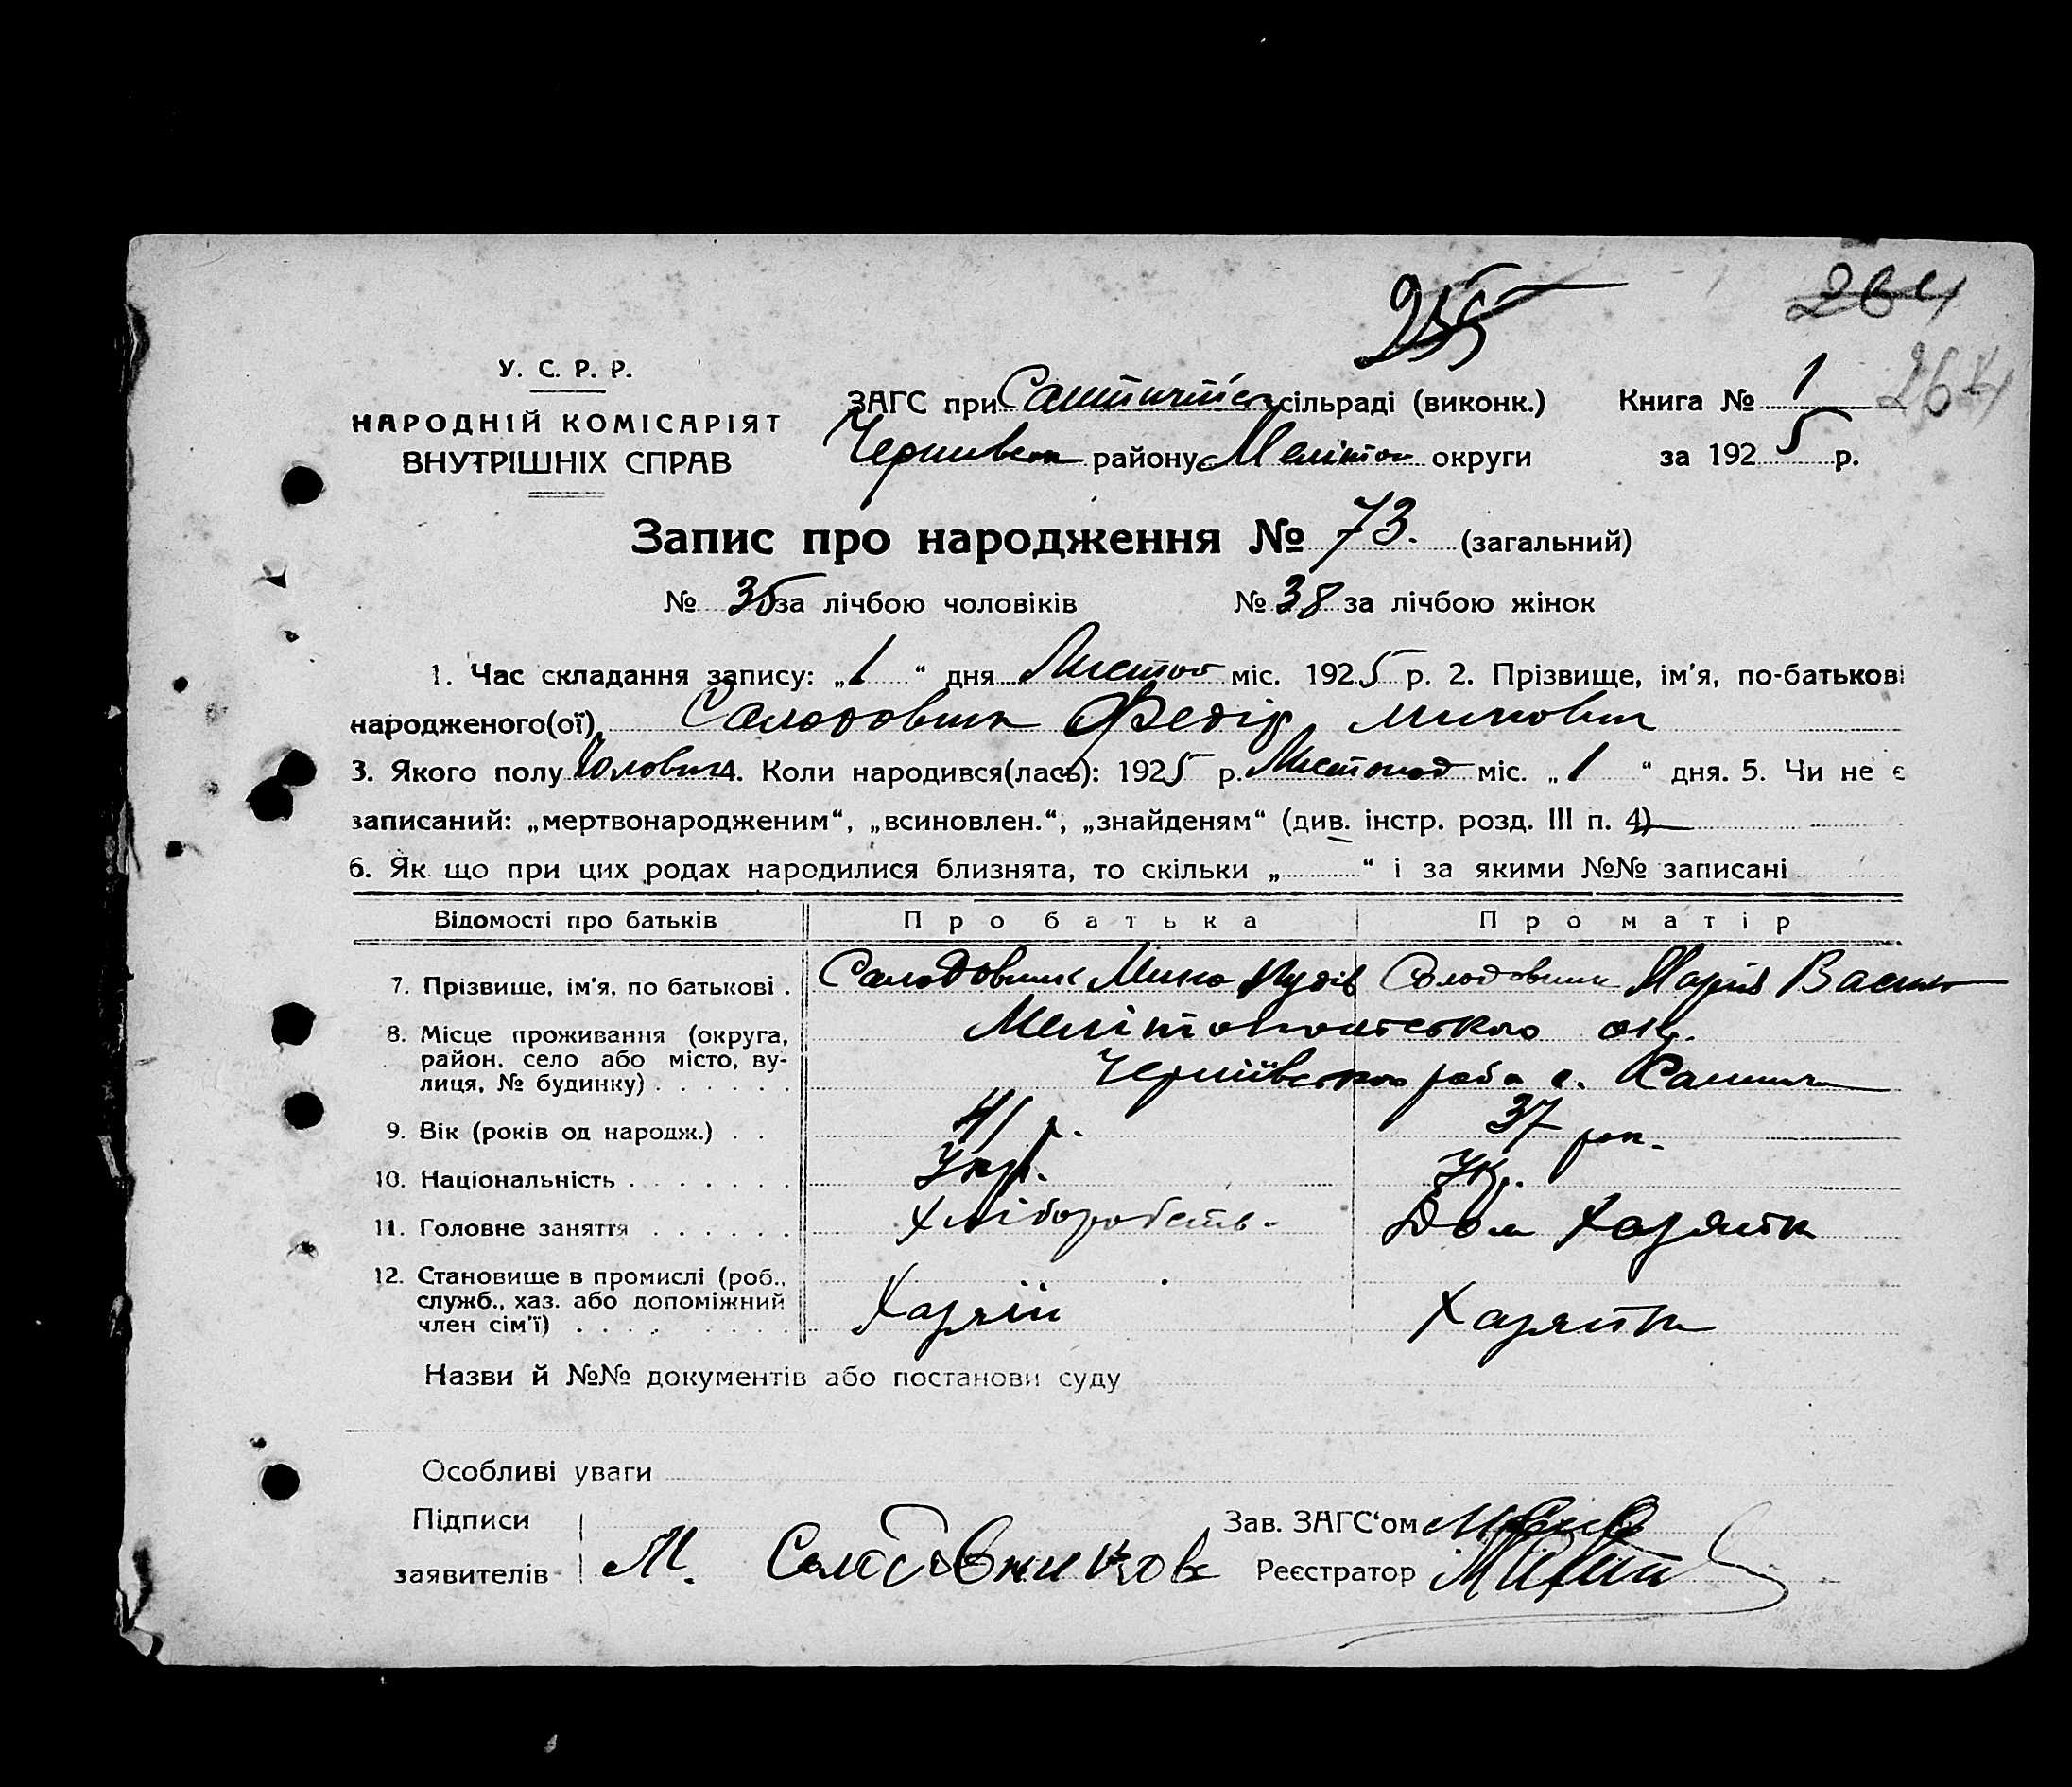 255
264
264
У. С. Р. Р.
НАРОДНІЙ КОМІСАРІЯТ
ВНУТРІШНІХ СПРАВ
ЗАГС при сільраді (виконк.) Книга № 1
району Меліто округи за 1925 р.
Запис про народження № 73. (загальний)
№ 35 за лічбою чоловіків № 38 за лічбою жінок
1. Час складання запису: „1“ дня Листоп міс. 1925 р. 2. Прізвище, ім'я, по-батькові
народженого(ої) Салодовник Федір
3. Якого полу Чолович 4. Коли народився(лась): 1925 р. Листопад міс. „1“ дня. 5. Чи не є
записаний: „мертвонародженим“, „всиновлен.“, „знайденям“ (див. інстр. розд. III п. 4)
6. Як що при цих родах народилися близнята, то скільки „ “ і за якими №№ записані
Відомості про батьків Про батька Про матір
7. Прізвище, ім'я, по батькові . Салодовник Мина Солодовник Марія Васил
8. Місце проживання (округа, Мелітопольського ок.
район, село або місто, ву-
лиця, № будинку) . . . . . . с.
9. Вік (років од народж.) . . 41 р. 37 рок.
10. Національність . . . . . . . Укр. Ук.
11. Головне заняття . . . . . . Хліборобств. Дом Хазяйк
12. Становище в промислі (роб.,
служб., хаз. або допоміжний Хазяїн Хазяйк
член сім'ї) . . . . . . . .
Назви й №№ документів або постанови суду
Особливі уваги
Підписи Зав. ЗАГС'ом
заявителів М. Солодовников Реєстратор